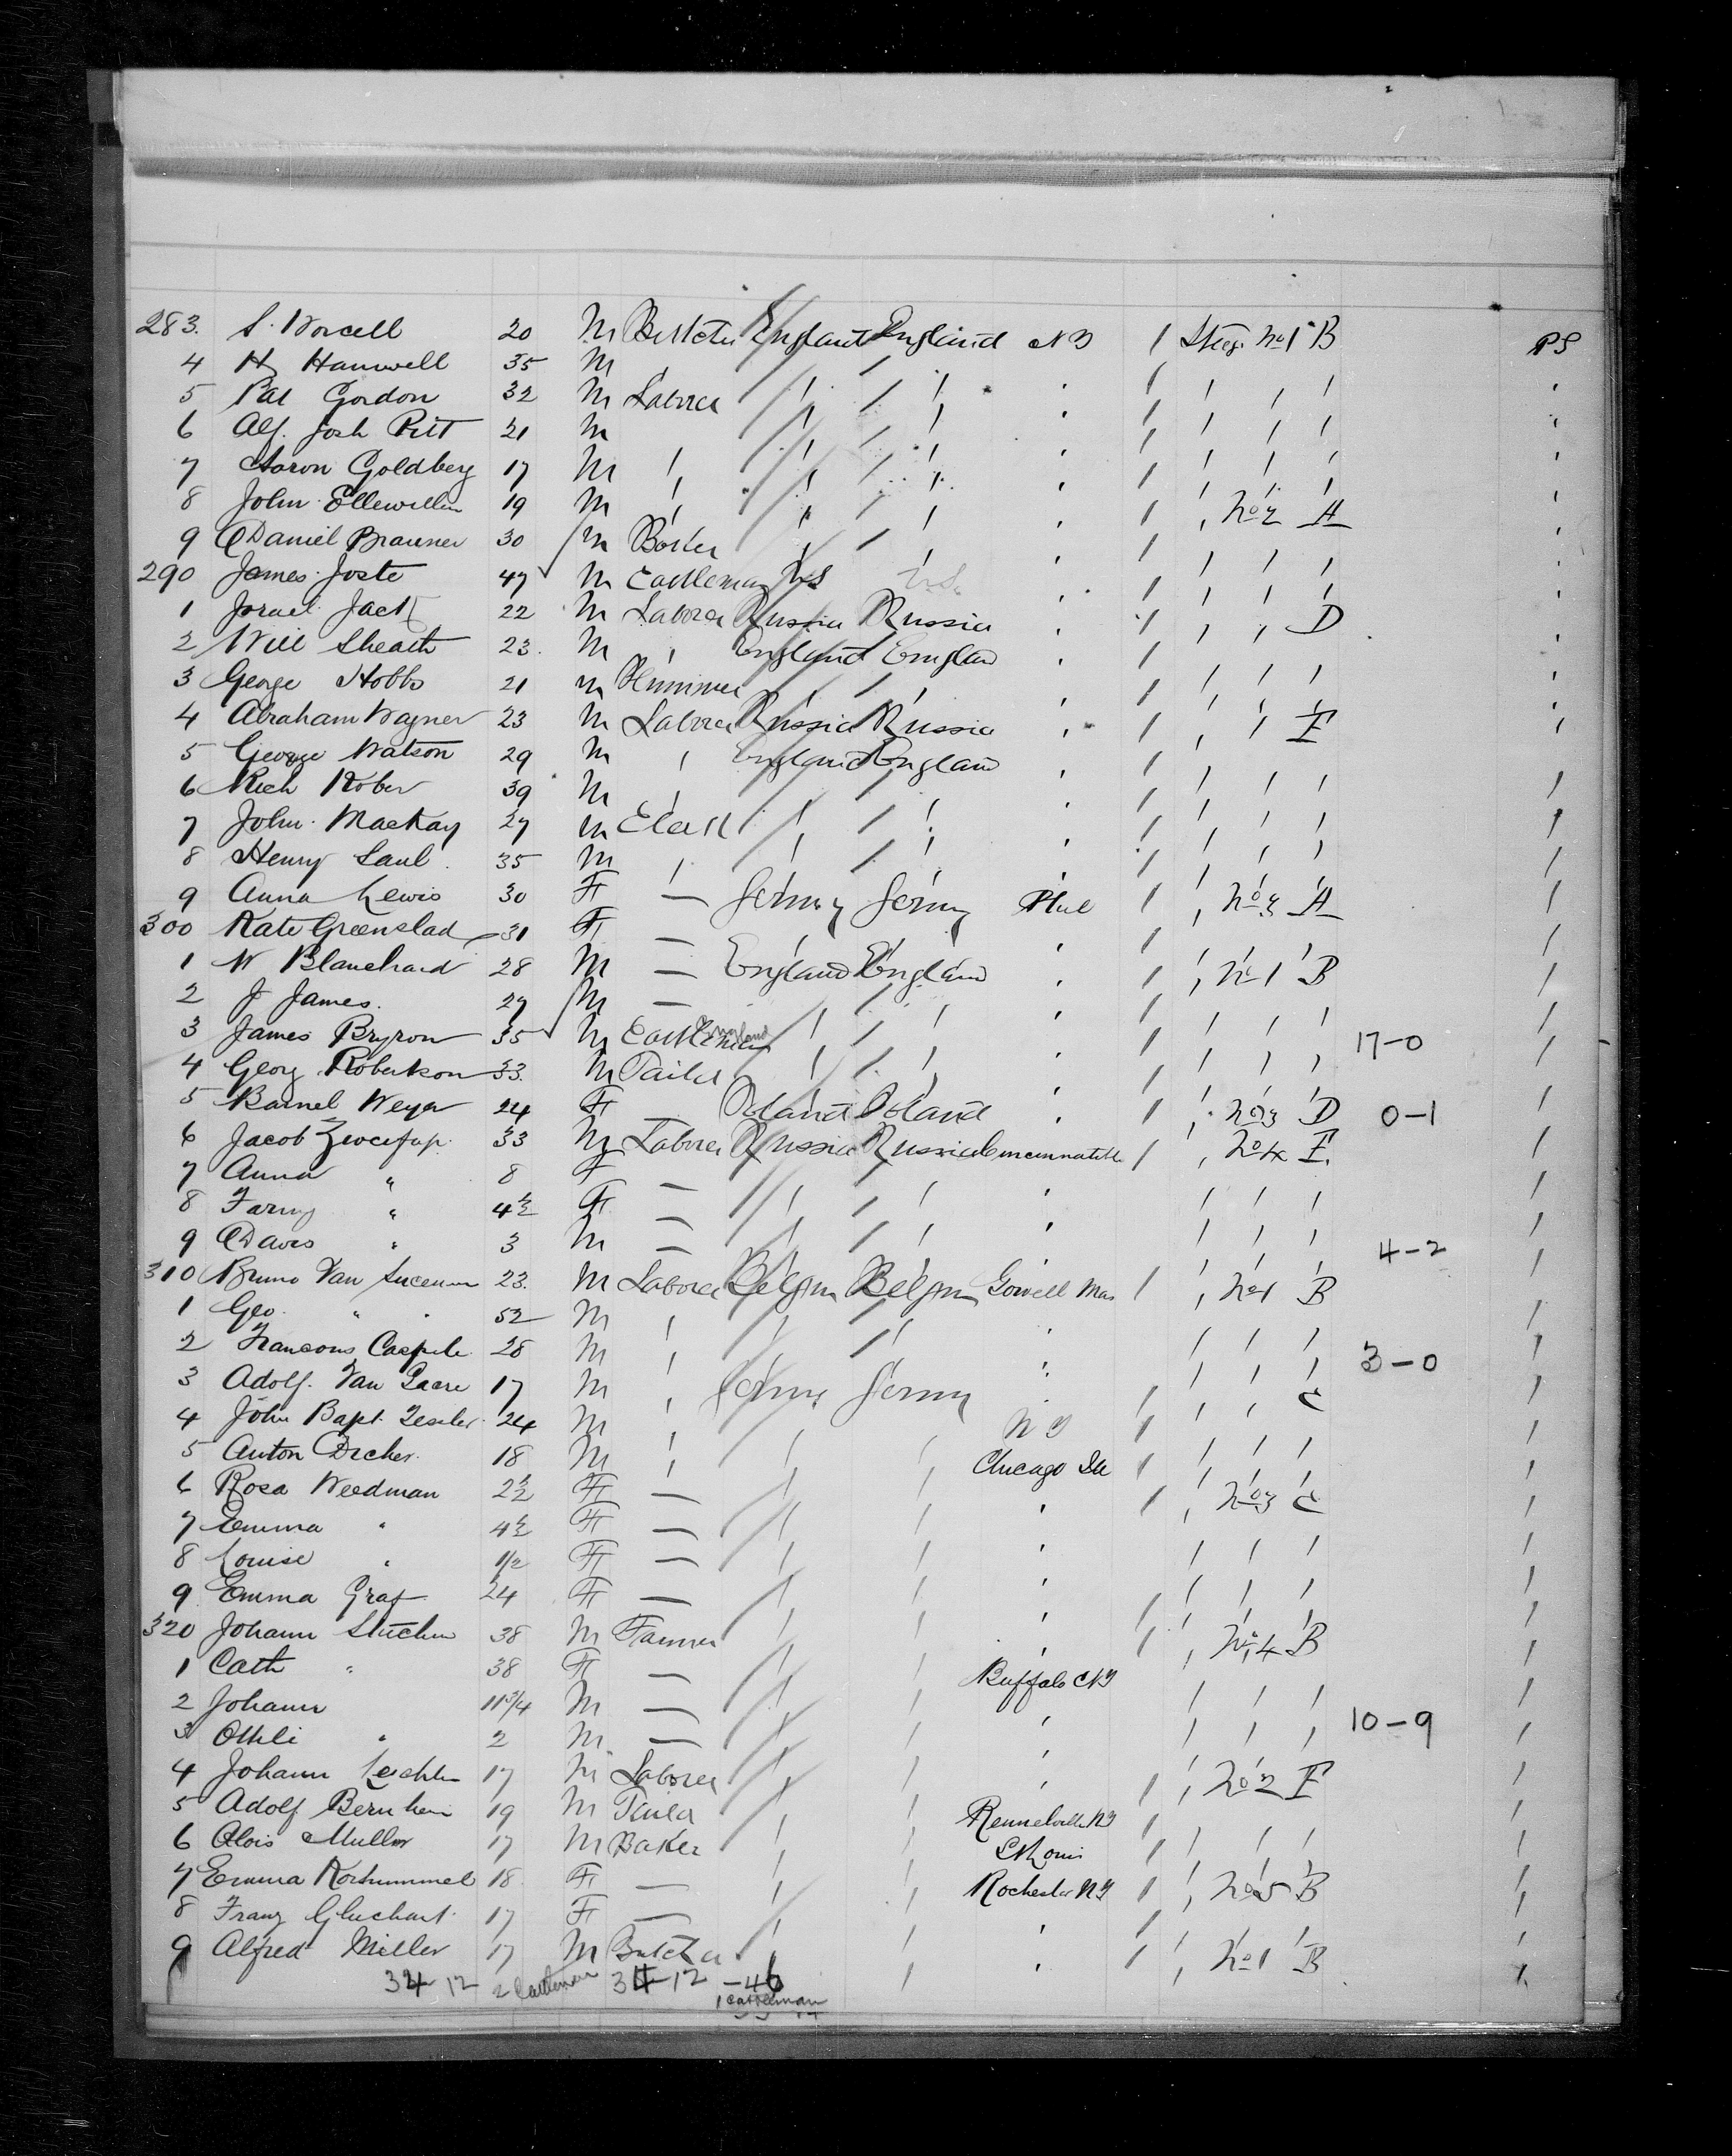 283. S. Worcell 20 M Butcher England England NY 1 Steeg. No 1 B PS
4 H Hamwell 35 M
5 Pat Gordon 32 M Laborer
6 Alf. Josh Pitt 21 M
7 Aaron Goldberg 17 M
8 John Ellewellin 19 M No 2 A
9 Daniel Brauner 30 M
290 James Joste 47 M Cattleman U.S. U.S.
1 Israel Jack 22 M Laborer Russia Russia D
2 Will Sheath 23. M England England
3 George Hobbs 21 M
4 Abraham Wagner 23 M Laborer Russia Russia E
5 George Watson 29 M England England
6 Rich Kober 39 M
7 John Mackay 27 M Clerk
8 Henry Saul 35 M
9 Anna Lewis 30 F — Germy Germy Phil 1 No 3 A
300 Kate Greenslad 31 F —
1 W Blanchard 28 M — England England No 1 B
2 J James. 27 M —
3 James Bryron 35 M Cattleman England 17-0
4 Georg Robertson 33. M Tailor
5 Barnel Weyer 24 F — Poland Poland No 3 D 0-1
6 Jacob 33 M Laborer Russia Russia 1 No 4 E.
7 Anna " 8 F —
8 Fanny " 4½ F —
9 David " 3 M — 4-2
310 Bruno Van 23. M Laborer Belgm Belgm Lowell Mas 1 No 1 B
1 Geo. " 52 M
2 Francois 28 M 3-0
3 Adolf. Van 17 M Germy Germy C
4 John Bapt. 24 M NY 1
5 Anton 18 M Chicago Ill 1
6 Rosa Weedman 2½ F — 1 No 3 C
7 Emma " 4½ F —
8 Louise " 1/2 F —
9 Emma Graf 24 F —
320 Johann 38 M Farmer 1 No 4 B
1 Cath " 38 F — Buffalo NY
2 Johann 11 3/4 M —
3 " 2 M — 10-9
4 Johann 17 M Laborer No 2 E
5 Adolf Bernheim 19 M Tailor NY 1
6 Alois Muller 17 M Baker St Louis 1
7 Emma 18. F — Rochester NY 1 No 5 B
8 Franz 17 F —
9 Alfred Miller 17 M Butcher 1 No 1 B
34 12 2 Cattleman 34-12 -46
1 cattleman